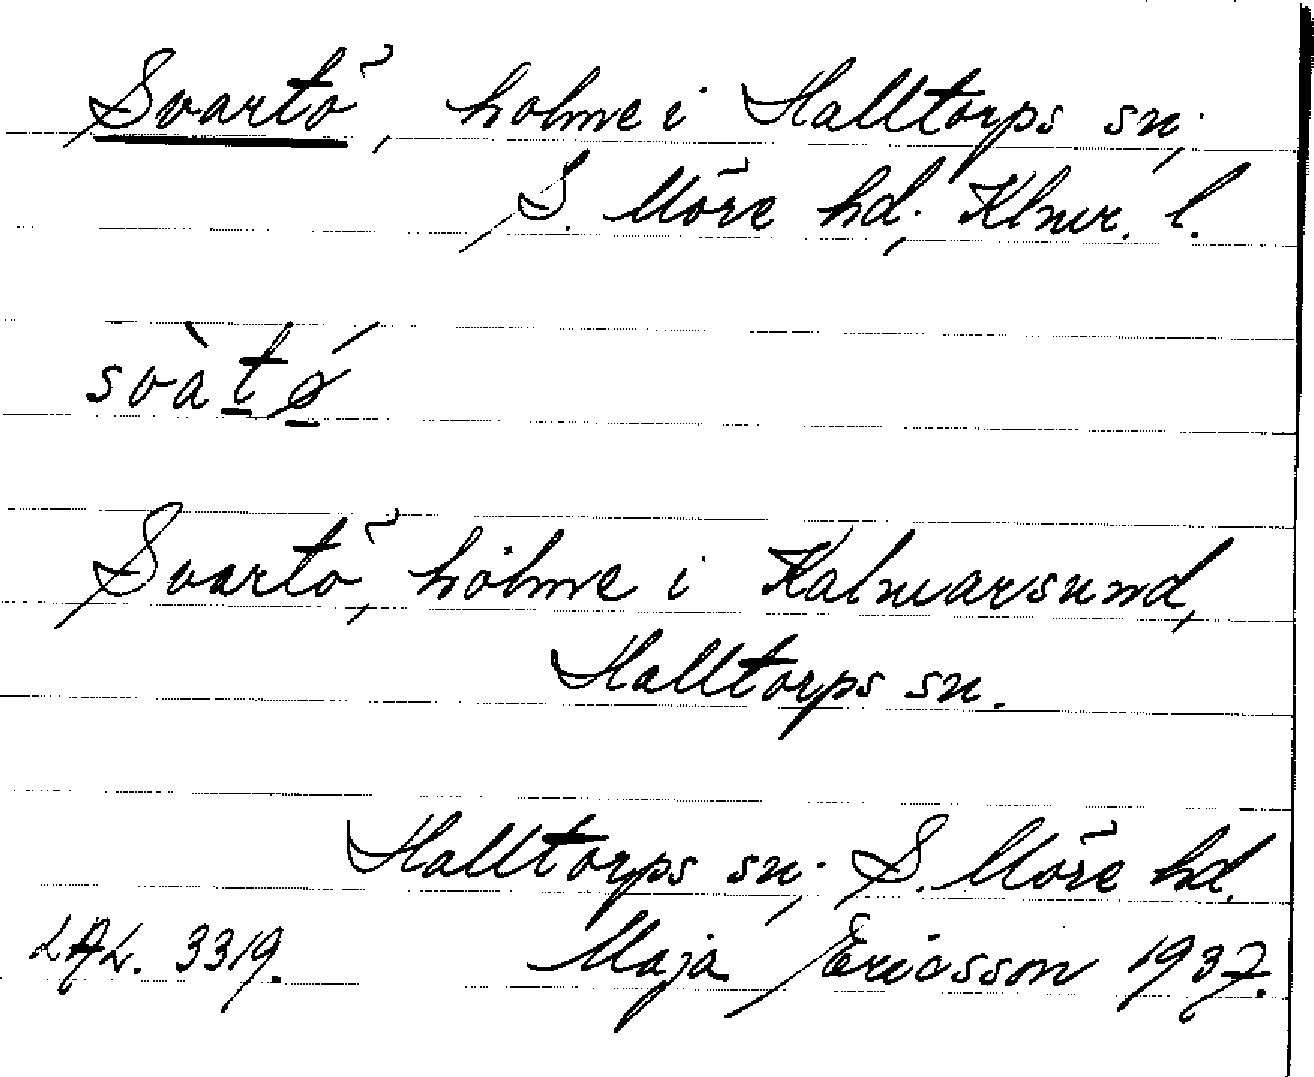 Svartö, holme i Halltorps sn,
S. Möre hd, Klmr. l.
svàtǿ
Svartö, holme i Kalmarsund,
Halltorps sn.
Halltorps sn, S. Möre hd.
LAL. 3319. Maja Ericsson 1937.